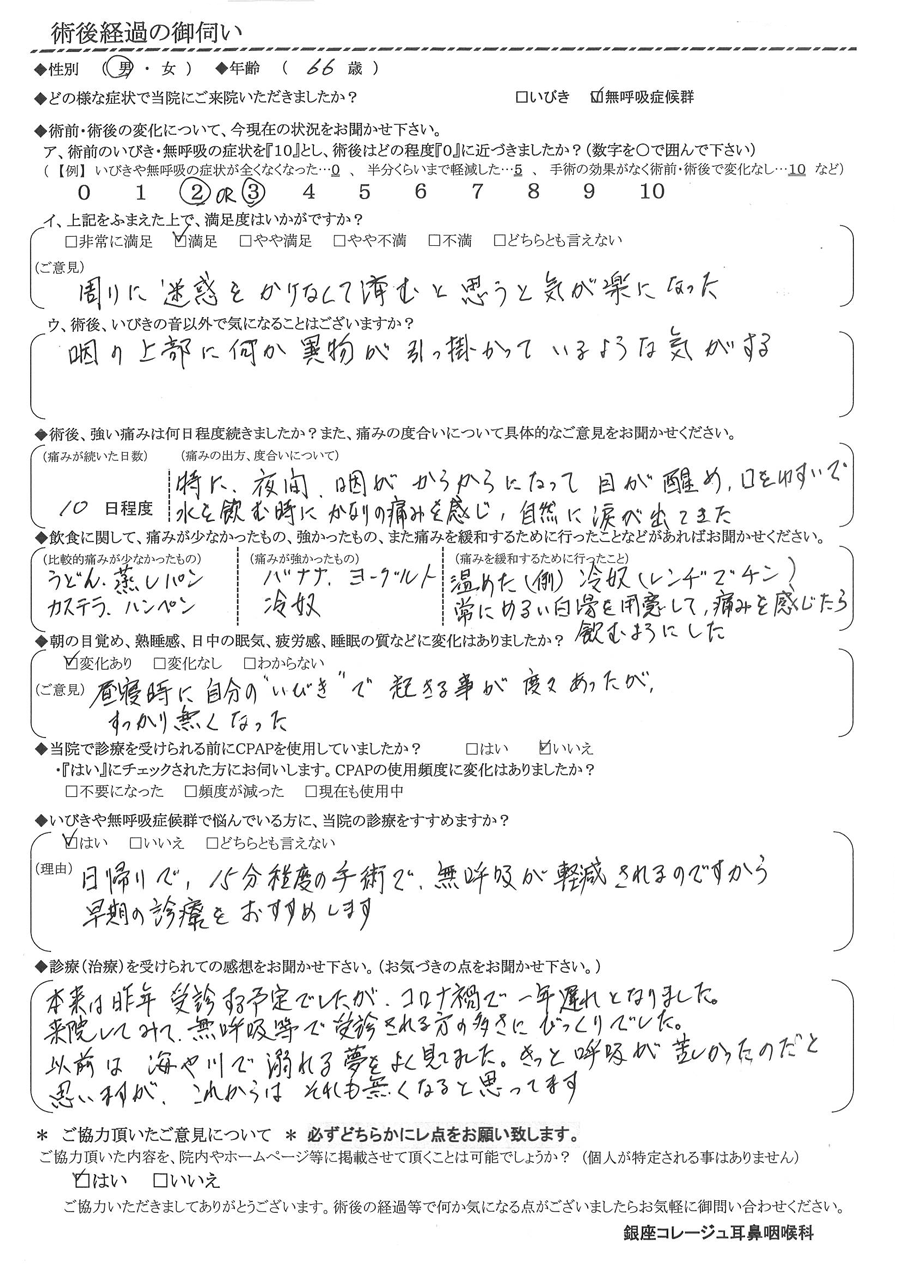 術後経過の御伺い
◆性別 (男・女) ◆年齢 ( 66 歳)
◆どの様な症状で当院にご来院いただきましたか? □いびき ☑無呼吸症候群
◆術前・術後の変化について、今現在の状況をお聞かせ下さい。
ア、術前のいびき・無呼吸の症状を『10』とし、術後はどの程度『0』に近づきましたか?(数字を〇で囲んで下さい)
(【例】 いびきや無呼吸の症状が全くなくなった…0 、 半分くらいまで軽減した…5 、 手術の効果がなく術前・術後で変化なし…10 など)
0 1 2 OR 3 4 5 6 7 8 9 10
イ、上記をふまえた上で、満足度はいかがですか?
□非常に満足 ☑満足 □やや満足 □やや不満 □不満 □どちらとも言えない
(ご意見)
周りに迷惑をかけなくて済むと思うと気が楽になった
ウ、術後、いびきの音以外で気になることはございますか?
咽の上部に何か異物が引っ掛かっているような気がする
◆術後、強い痛みは何日程度続きましたか?また、痛みの度合いについて具体的なご意見をお聞かせください。
(痛みが続いた日数) (痛みの出方、度合いについて)
特に、夜間、咽がからからになって目が醒め、口をゆすいで
10 日程度 水を飲む時にかなりの痛みを感じ、自然に涙が出てきた
◆飲食に関して、痛みが少なかったもの、強かったもの、また痛みを緩和するために行ったことなどがあればお聞かせください。
(比較的痛みが少なかったもの) (痛みが強かったもの) (痛みを緩和するために行ったこと)
うどん、蒸しパン バナナ、ヨーグルト 温めた(例)冷奴(レンヂでチン)
カステラ、ハンペン 冷奴 常にぬるい白湯を用意して、痛みを感じたら
飲むようにした
◆朝の目覚め、熟睡感、日中の眠気、疲労感、睡眠の質などに変化はありましたか?
☑変化あり □変化なし □わからない
(ご意見) 昼寝時に自分の"いびき"で起きる事が度々あったが、
すっかり無くなった
◆当院で診療を受けられる前にCPAPを使用していましたか? □はい ☑いいえ
・『はい』にチェックされた方にお伺いします。CPAPの使用頻度に変化はありましたか?
□不要になった □頻度が減った □現在も使用中
◆いびきや無呼吸症候群で悩んでいる方に、当院の診療をすすめますか?
☑はい □いいえ □どちらとも言えない
(理由) 日帰りで、15分程度の手術で、無呼吸が軽減されるのですから
早期の診療をおすすめします
◆診療(治療)を受けられての感想をお聞かせ下さい。(お気づきの点をお聞かせ下さい。)
本来は昨年受診する予定でしたが、コロナ禍で一年遅れとなりました。
来院してみて、無呼吸等で受診される方の多さにびっくりでした。
以前は海や川で溺れる夢をよく見てました。きっと呼吸が苦しかったのだと
思いますが、これからはそれも無くなると思ってます
* ご協力頂いたご意見について * 必ずどちらかにレ点をお願い致します。
ご協力頂いた内容を、院内やホームページ等に掲載させて頂くことは可能でしょうか? (個人が特定される事はありません)
☑はい □いいえ
ご協力いただきましてありがとうございます。術後の経過等で何か気になる点がございましたらお気軽に御問い合わせください。
銀座コレージュ耳鼻咽喉科